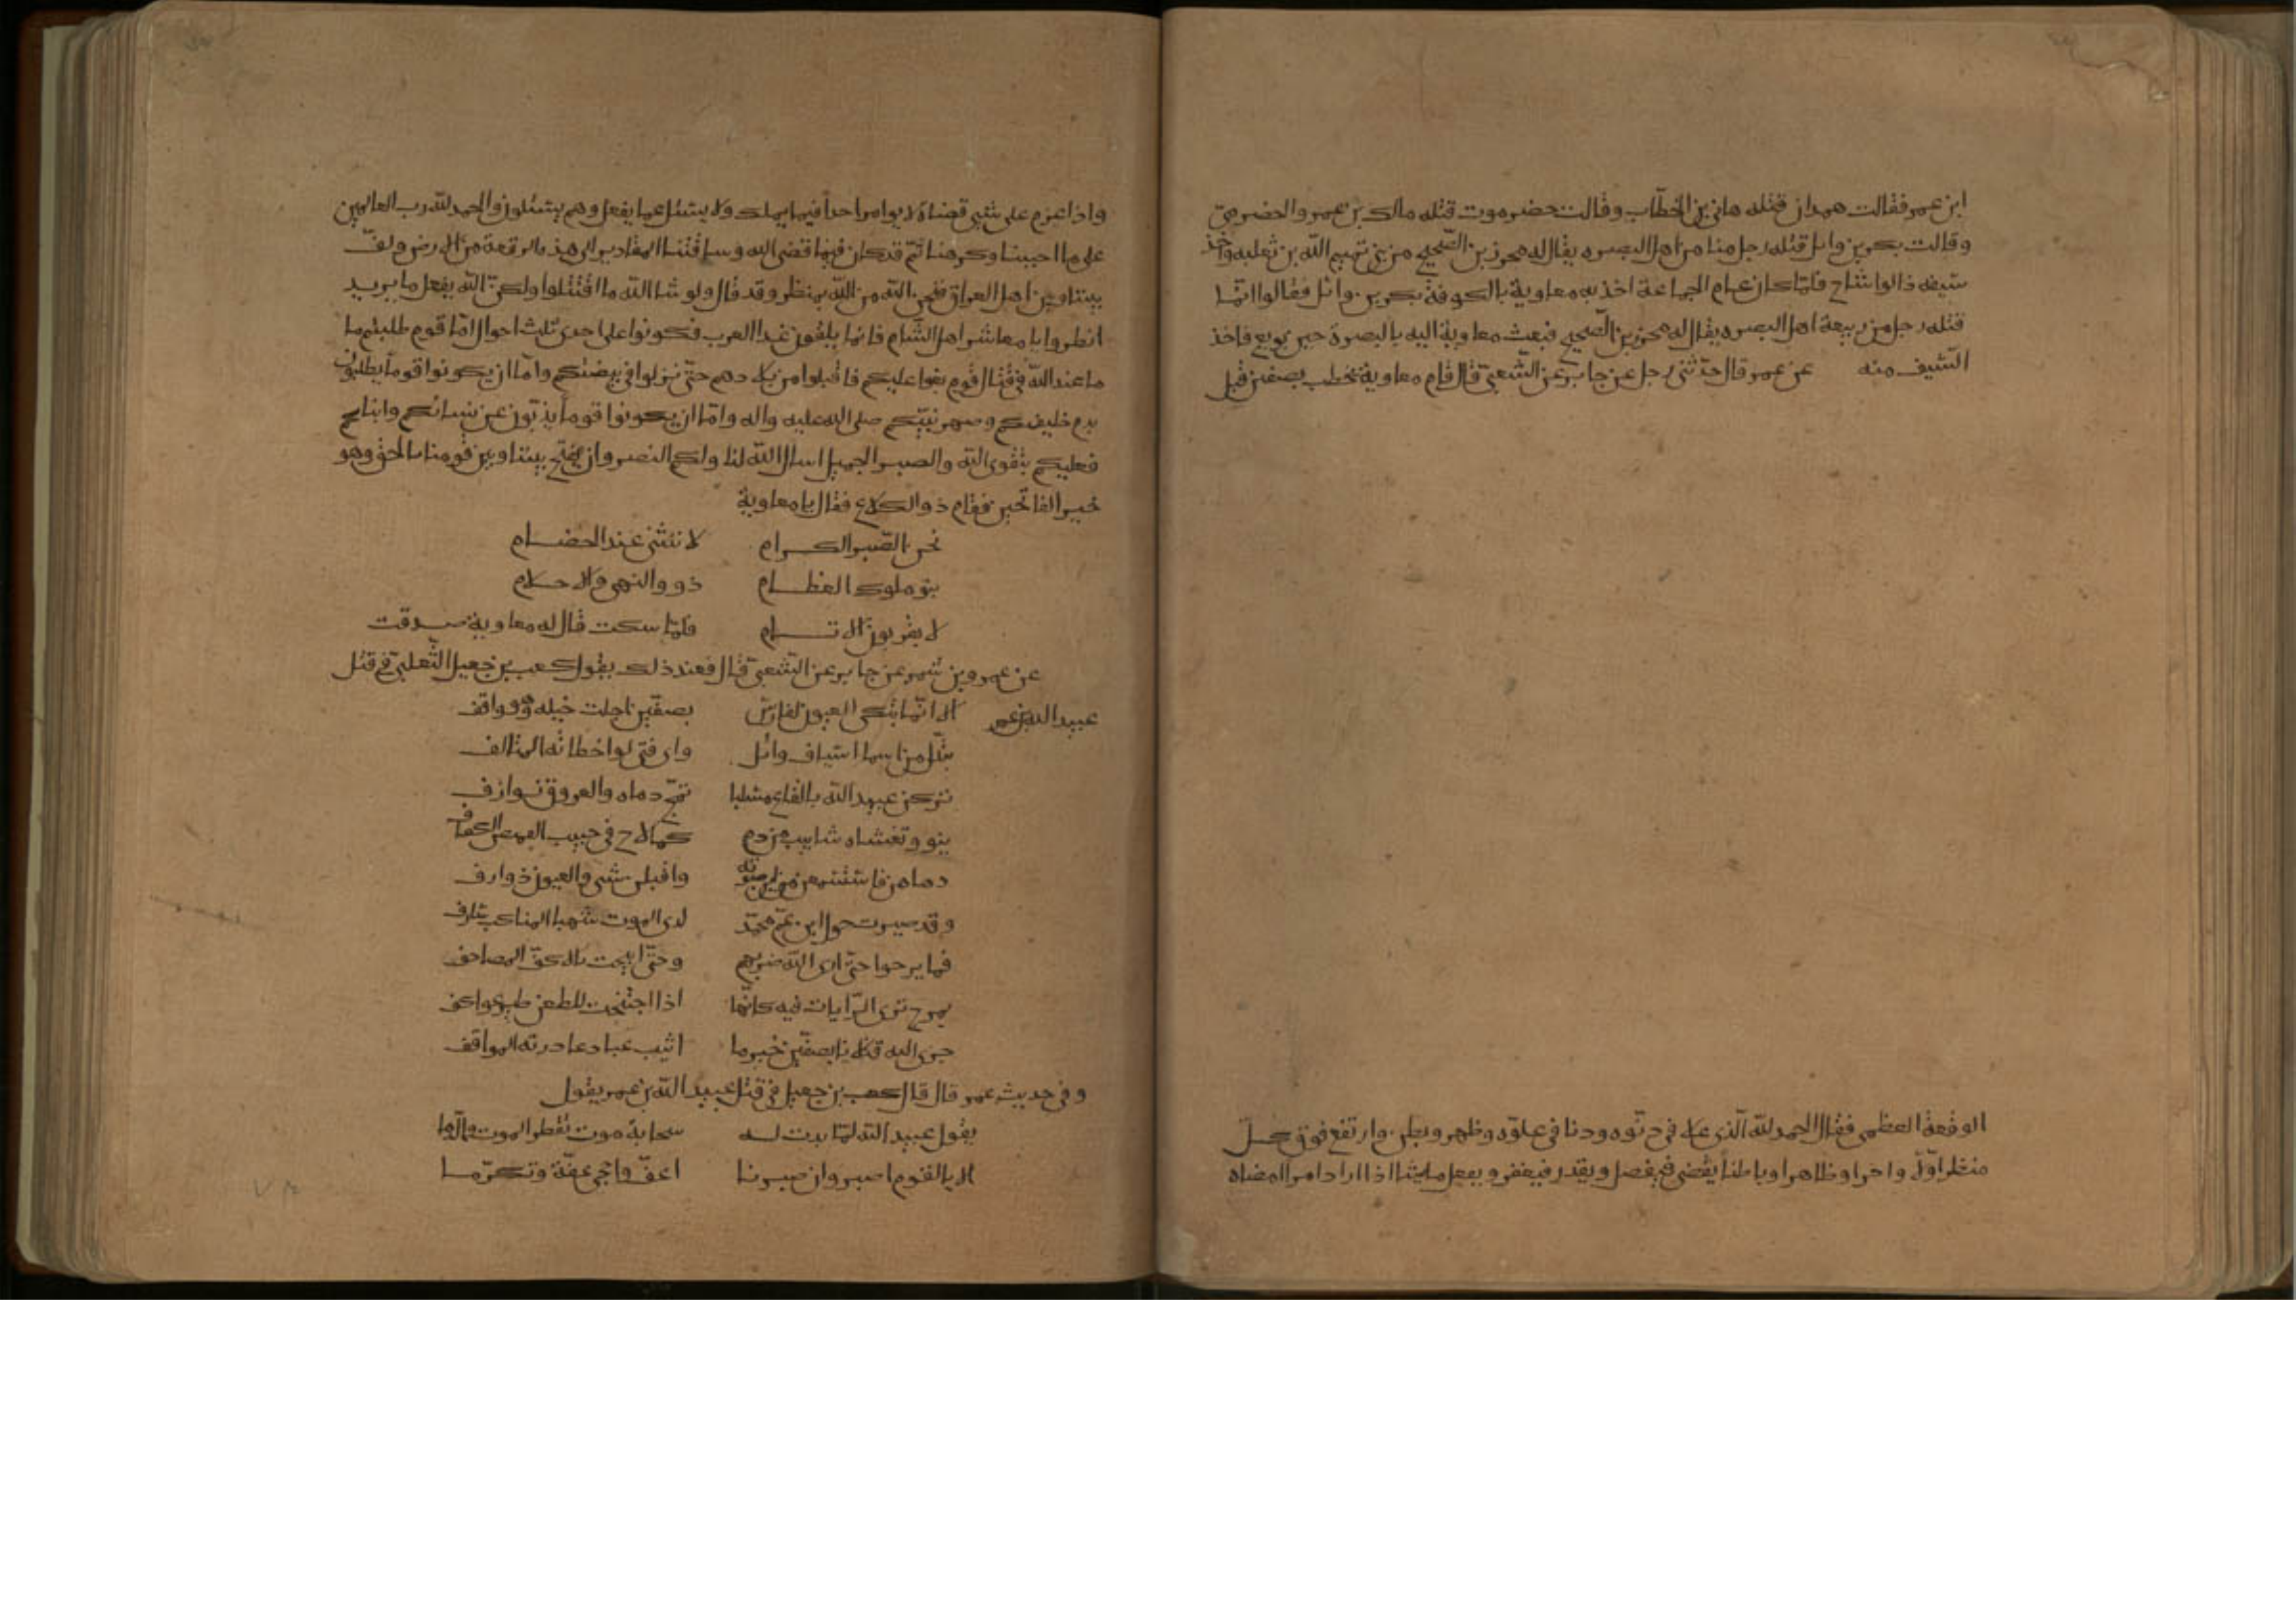 ابن عمر فقالت همدان قتله هاني بن الخطّاب وقالت حضرموت قتله مالك بن عمرو الحضرميّ
وقالت بكر بن وائل قتله رجل منا من اهل البصره يقال له محرز بن الصّحصح من بني تيهم اللّه بن ثعلبه واخذ
سيفه ذالوشاح فلمّا كان عام الجماعة اخذ به معاوية بالكوفة بكر بن وائل فقالوا انّما
قتله رجل من ربيعة اهل البصره يقال له محرز بن الصّحصح فبعث معاوية اليه بالبصرة حين بويع فاخذ
السّيف منه عن عمر قال حدّثنى رجل عن جابر عن الشّعبىّ قال قام معاوية يخطب بصفين قبل
الوقعة العظمى فقال الحمد للّه الّذى علا فى دنّوه ودنا فى علوّه وظهر وبطن وارتفع فوق كلّ
منظر اوّلاً واخرا وظاهرا وباطنا يقضى فيفصل ويقدر فيغفر ويفعل ما يشا اذا اراد امرا امضاه
واذا عزم على شئ قضاه لا يوامر احداً فيما يملك ولا يسئل عما يفعل وهم يسئلون والحمد للّه رب العالمين
على ما احببنا وكرهنا ثمّ قد كان فيما قضى الله وساقتنا المقادير الى هذه الرقعة من الارض ولفّ
بيننا وبين اهل العراق فنحن من اللّه بمنظر وقد قال ولو شا اللّه ما اقتتلوا ولكنّ اللّه يفعل ما يريد
انظروا يا معاشر اهل الشّام فانما يلقون غدا العرب فكونوا على احدى ثلث احوال امّا قوم طلبتم ما
عند اللّه فى قتال قوم بغوا عليكم فاقبلوا من بلادهم حتّى نزلوا فى بيضتكم وامّا ان يكونوا قوماً يطلبون
بدم خليفتكم وصهر نبيّكم صلى الله عليه واله وامّا ان يكونوا قوماً يذبّون عن نسائكم وابنائكم
فعليكم بتقوى اللّه والصبر الجميل اسال اللّه لنا ولكم النصر وان يفتح بيننا وبين قومنا بالحق وهو
خير الفاتحين فقام ذو الكلاع فقال يا معاوية
نحن الصّبر الكرام لا ننثنى عند الخصام
بنو ملوك العظام ذوو النهى والاحلام
لا يقربون الاثام فلمّا سكت قال له معاوية صدقت
عن عمرو بن شمر عن جابر عن الشّعبىّ قال فعند ذلك يقول كعب بن جعيل الثّعلبىّ فى قتل
عبيد الله بن عمر الا انّما تبكى العيون لفارس بصفّين اجلت خيله وهو واقف
تبدّل من اسما اسياف وائل واى فتى لو اخطاته المتالف
تركن عبيد اللّه بالقاع مسلما تمجّ دماه والعروق نوازف
ينو وتغشاه شابيب من دم كما لاح فى جيب القميص الكفائف
دماهن واقبلن شتى والعيون ذوارف
وقد صبرت حول ابن عمّ محمّد لدى الموت شهبا المناكب شارف
فما برحوا حتّى راى اللّه صبرهم وحتّى ابيحت بالاكفّ المصاحف
بمرج ترى الرّايات فيه كانّها اذا اجتنحت للطعن طير عواكف
جزى الله قتلانا بصفّين خير ما اثيب عباد غادرته المواقف
وفى حديث عمر قال قال كعب بن جعيل فى قتل عبيد اللّه بن عمر يقول
يقول عبيد اللّه لمّا بدت له سحابة موت تقطر الموت والدّما
الا يالقوم اصبروا ان صبرنا اعفّ واحجى عفّة وتكرّما